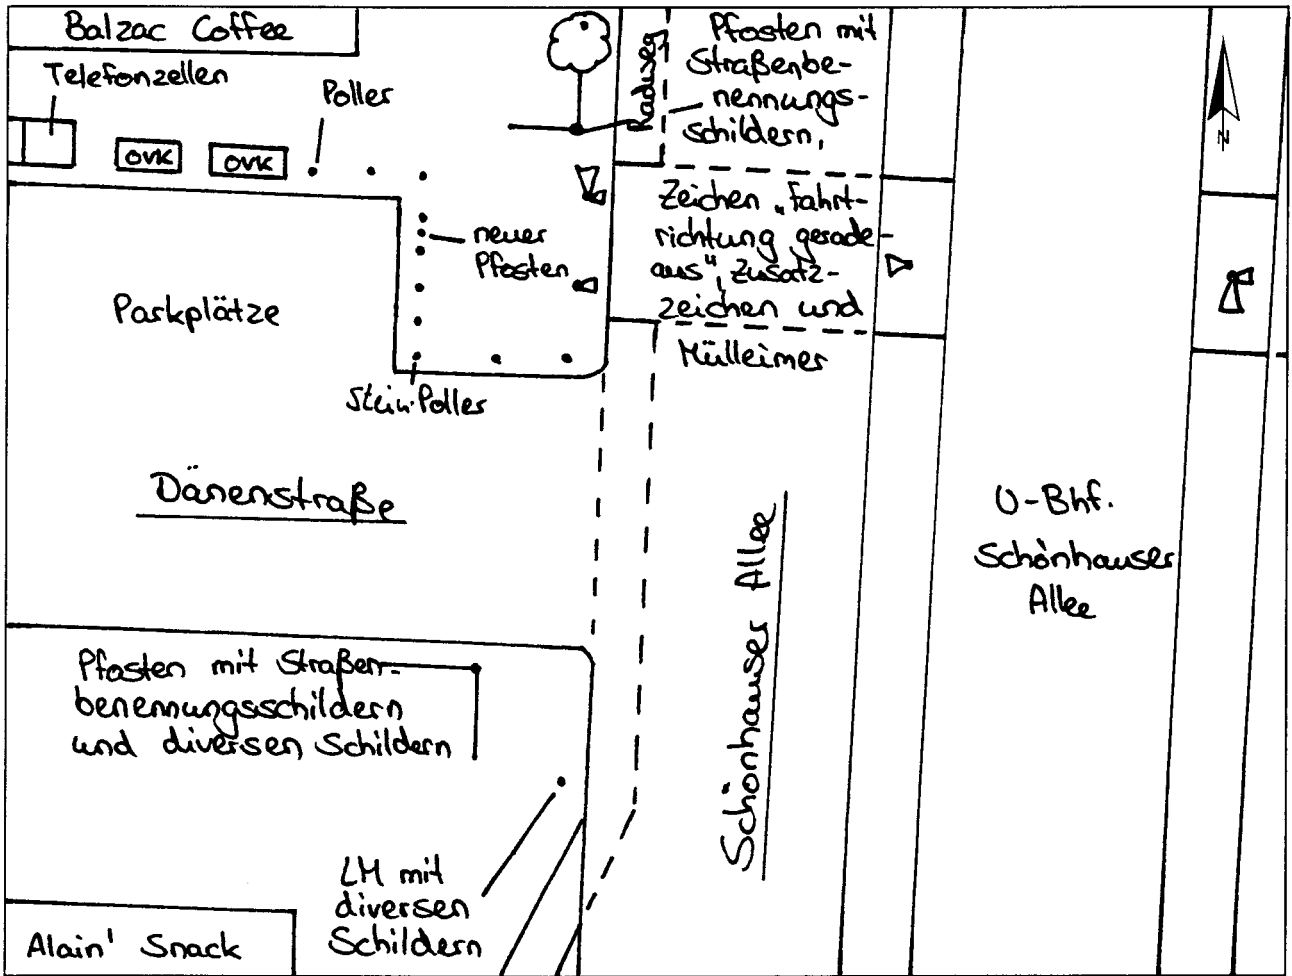 Balzac Coffee
Telefonzellen
Poller
OVK
OVK
Radweg
Pfosten mit
Straßenbe-
nennungs-
schildern,
Zeichen „Fahrt-
richtung gerade-
aus", Zusatz-
zeichen und
Mülleimer
N
neuer
Pfosten
Parkplätze
Stein-Poller
Dänenstraße
Schönhauser Allee
U-Bhf.
Schönhauser
Allee
Pfosten mit Straßen-
benennungsschildern
und diversen Schildern
LM mit
diversen
Schildern
Alain' Snack